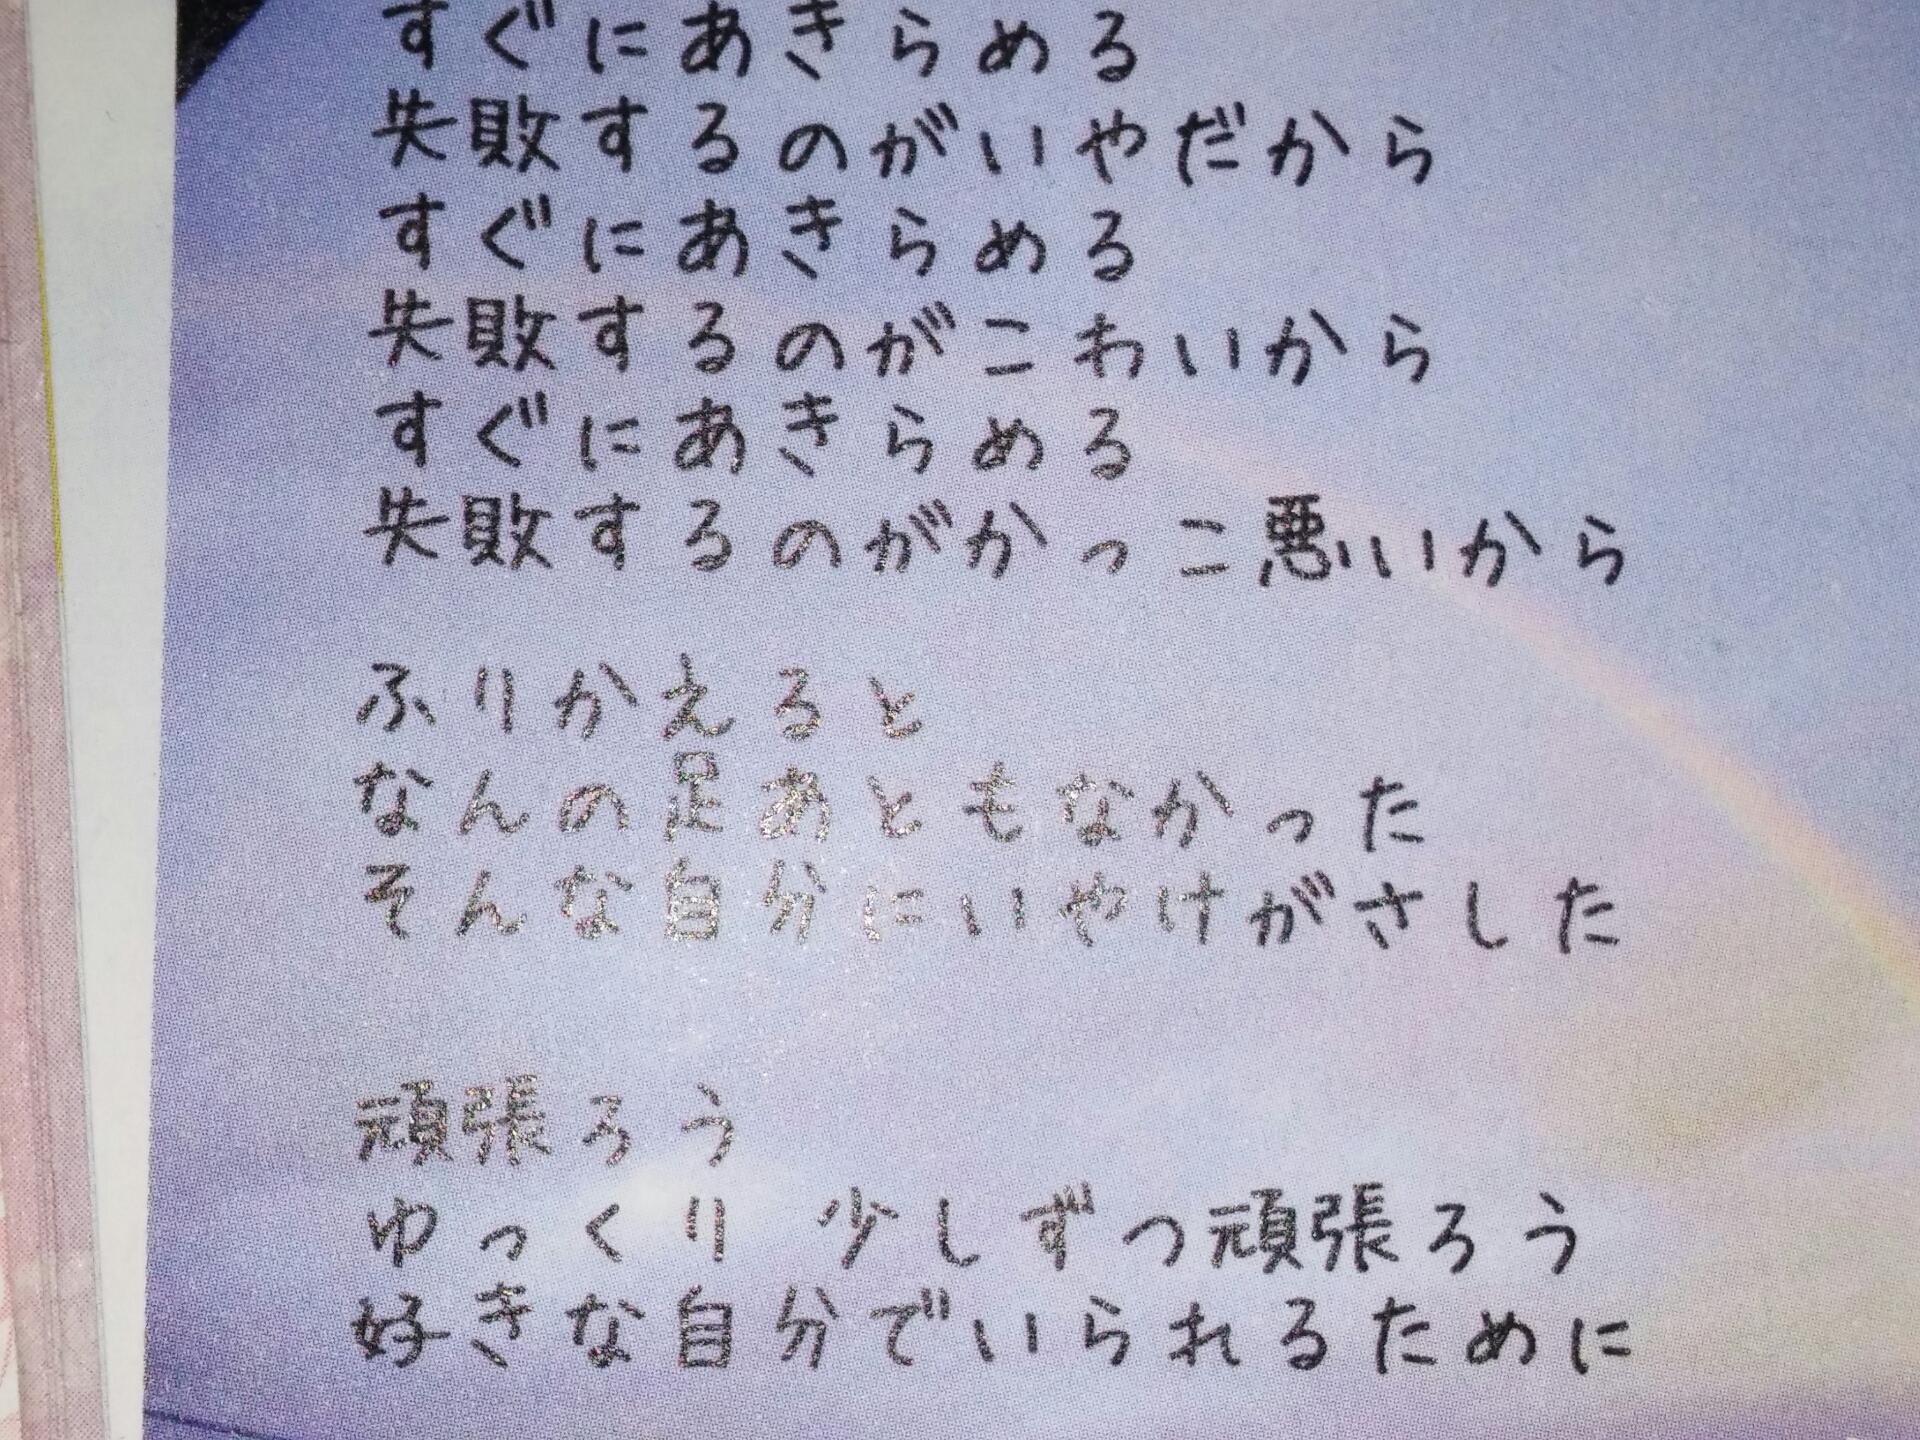 すぐにあきらめる
失敗するのがいやだから
すぐにあきらめる
失敗するのがこわいから
すぐにあきらめる
失敗するのがかっこ悪いいから
ふりかえると
なんの足あともなかった
そんな自分にいやけがさした
頑張ろう
ゆっくり 少しずつ頑張ろう
好きな自分でいられるために